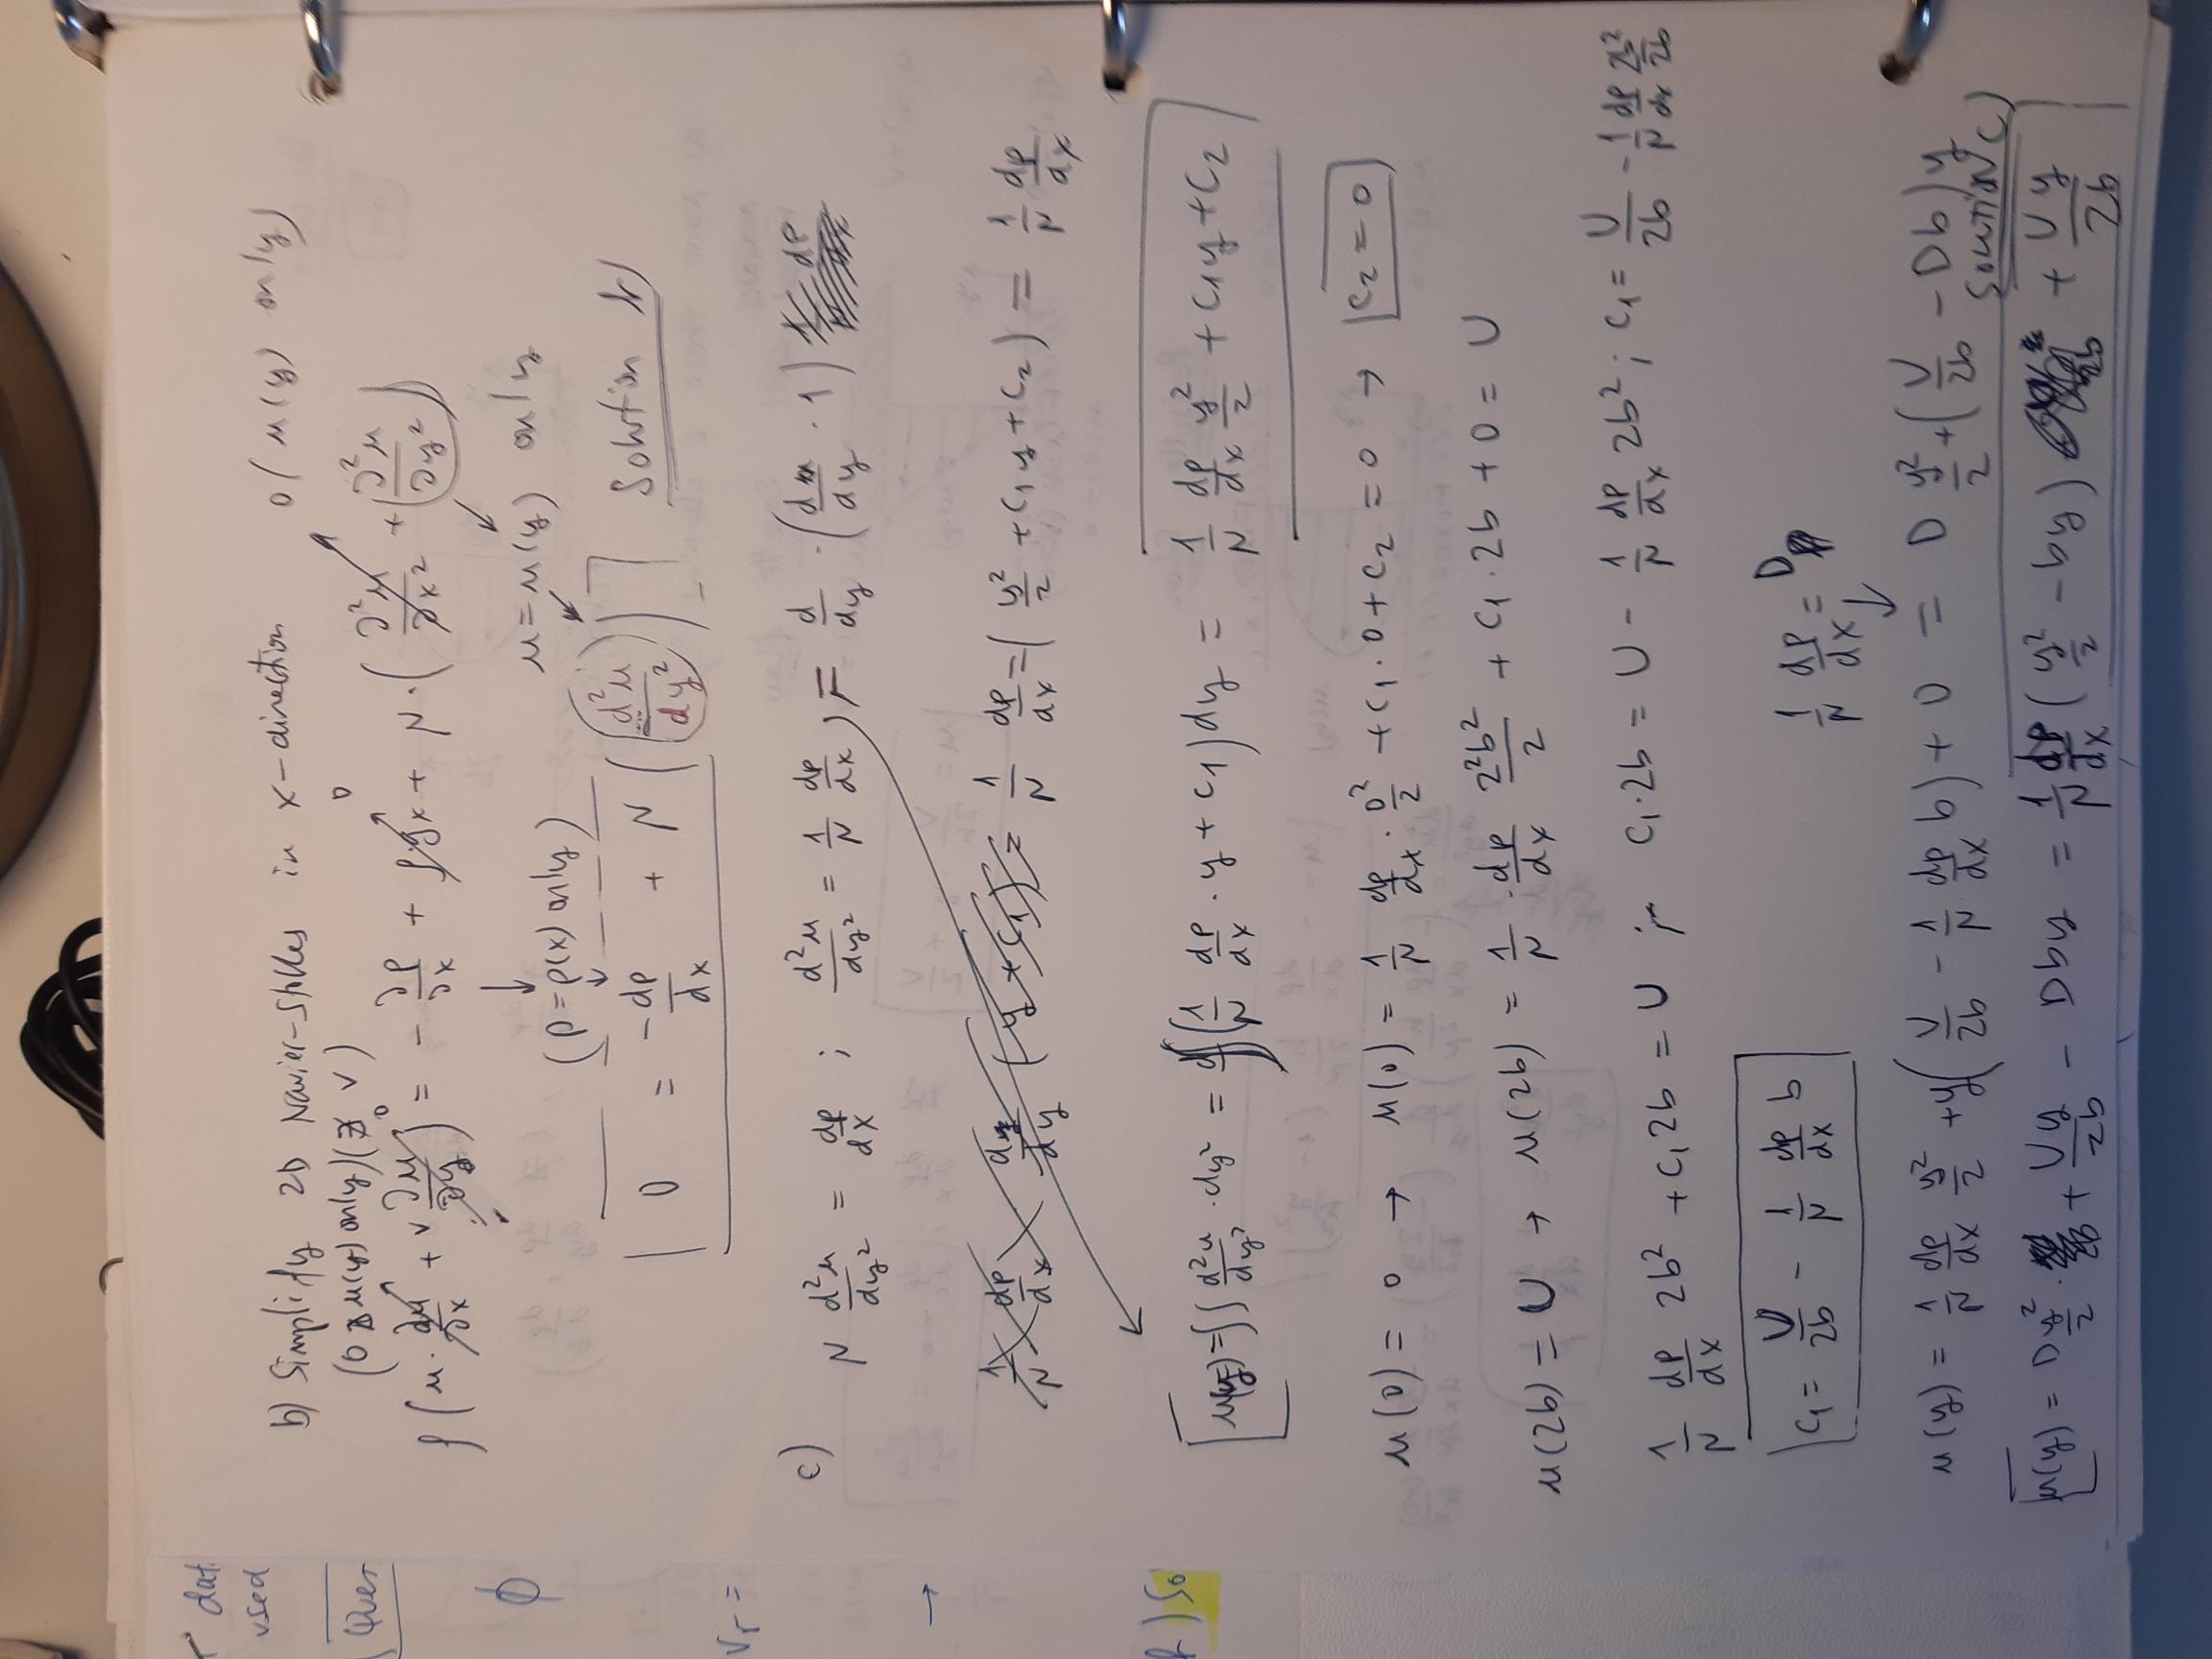 r dat.
used
Quer
ϕ
Vr =
→
f) So
b) Simplify 2D Navier-Stokes in x-direction 0 (u(y) only)
(0 u(y) only) ( v) 0
ρ(u · ∂u/∂x + v ∂u/∂y)⁰ = - ∂p/∂x + ρ·gx + μ·(∂²u/∂x² + ∂²u/∂y²)
↓ ↙
(p = p(x) only) u = u(y) only
0 = -dp/dx + μ (d²u/dy²) Solution b)
c) μ d²u/dy² = dp/dx ; d²u/dy² = 1/μ dp/dx , = d/dy · (du/dy · 1) dp
1/μ dp/dx dy/dy (y + C1) = 1/μ dp/dx = (y²/2 + C1 y + C2) = 1/μ dp/dx
u(y) = ∫∫ d²u/dy² · dy² = ∫(1/μ dp/dx · y + C1) dy = 1/μ dp/dx y²/2 + C1y + C2
u(0) = 0 → u(0) = 1/μ dp/dx · 0²/2 + C1 · 0 + C2 = 0 → C2 = 0
u(2b) = U → u(2b) = 1/μ · dp/dx 2²b²/2 + C1 · 2b + 0 = U
1/μ dp/dx 2b² + C1 2b = U ; C1·2b = U - 1/μ dp/dx 2b² ; C1 = U/2b - 1/μ dp/dx 2b²/2b
C1 = U/2b - 1/μ dp/dx b
1/μ dp/dx = D
↓
u(y) = 1/μ dp/dx y²/2 + y(U/2b - 1/μ dp/dx b) + 0 = D y²/2 + (U/2b - Db)y
SOLUTION C)
u(y) = D y²/2 · + Uy/2b - Dby = 1/μ dp/dx (y²/2 - by) + Uy/2b